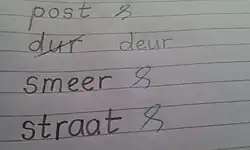 post
dur deur
smeer
straat